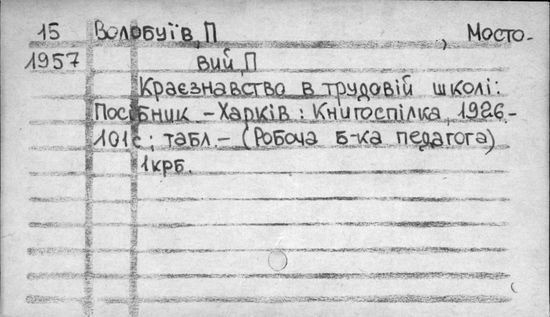 15 Волобуїв, П , Мосто-
1957 вий, П
Краєзнавство в трудовій школі:
Посібник – Харків: Книгоспілка, 1926 –
101 с; табл – (Робоча б-ка педагога)
1 крб.